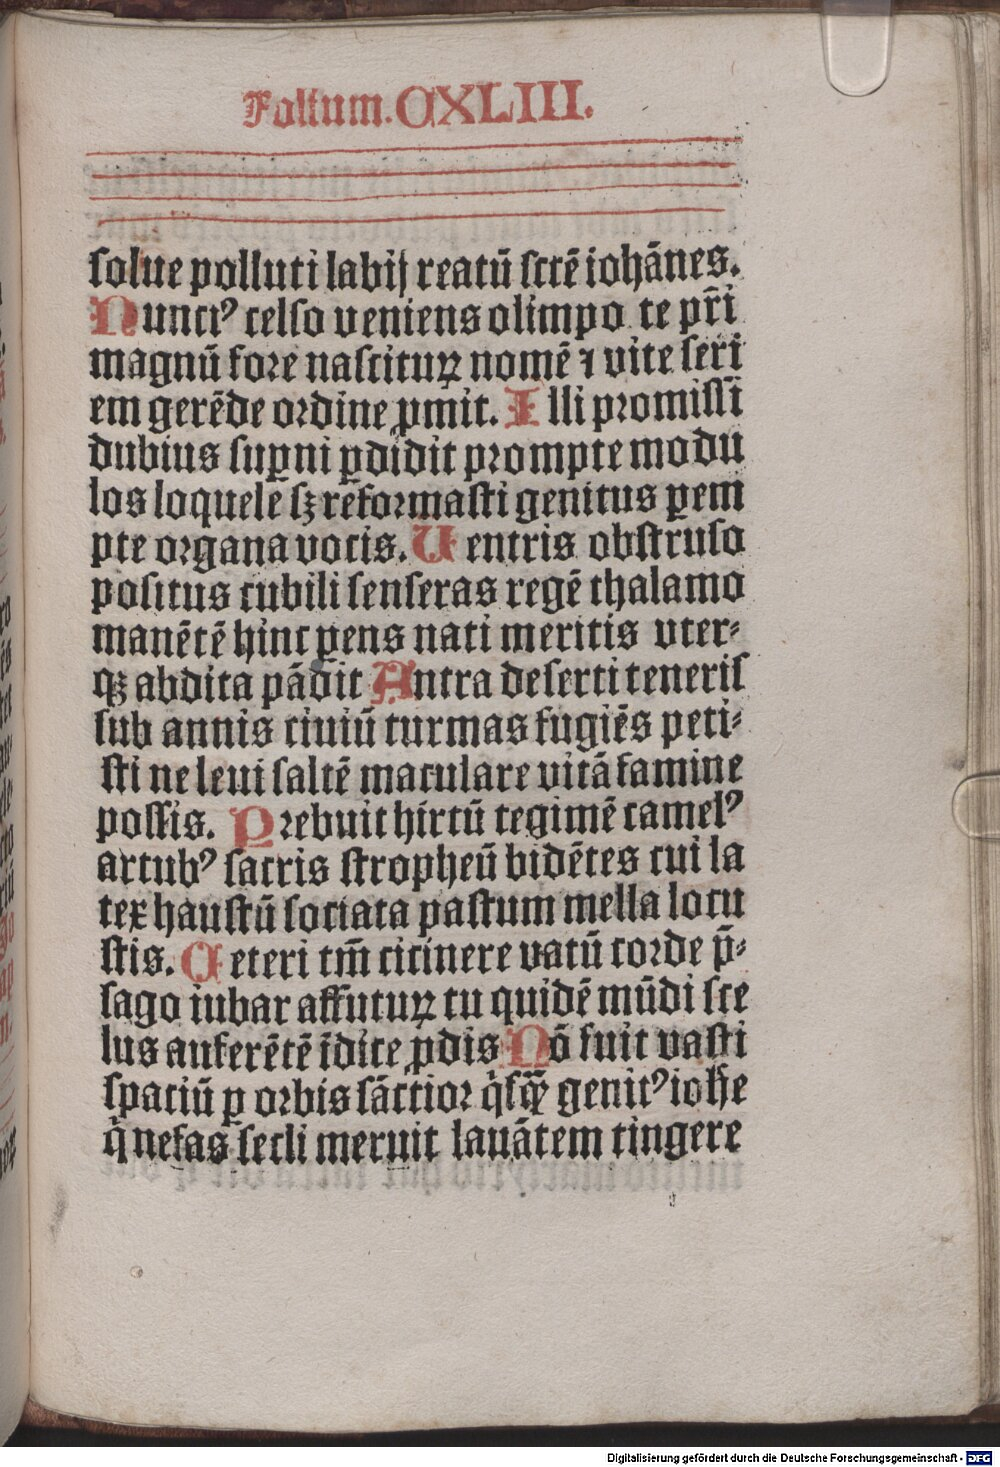 Folium. CXLIII.
solue polluti labij reatū sctē iohānes.
Nuncꝰ celso veniens olimpo te pr̄i
magnū fore nasciturꝝ nomē ⁊ vite seri
em gerēde ordine ꝓmit. Illi promissi
dubius suꝑni ꝑdidit prompte modu
los loquele sꝫ reformasti genitus ꝑem
pte organa vocis. Uentris obstruso
positus cubili senseras regē thalamo
manētē hinc ꝑens nati meritis vter⸗
qꝫ abdita pādit Antra deserti teneris
sub annis ciuiū turmas fugiēs peti⸗
sti ne leui saltē maculare vitā famine
possis. Prebuit hirtū tegimē camelꝰ
artubꝰ sacris stropheū bidētes cui la
tex haustū sociata pastum mella locu
stis. Ceteri tm̄ cicinere vatū corde p̄⸗
sago iubar affuturꝝ tu quidē mūdi sce
lus auferētē īdice ꝓdis Nō fuit vasti
spaciū ꝑ orbis sāctior q̇sq̄ȝ genitꝰ iohe
q̇ nefas secli meruit lauātem tingere
Digitalisierung gefördert durch die Deutsche Forschungsgemeinschaft - DFG